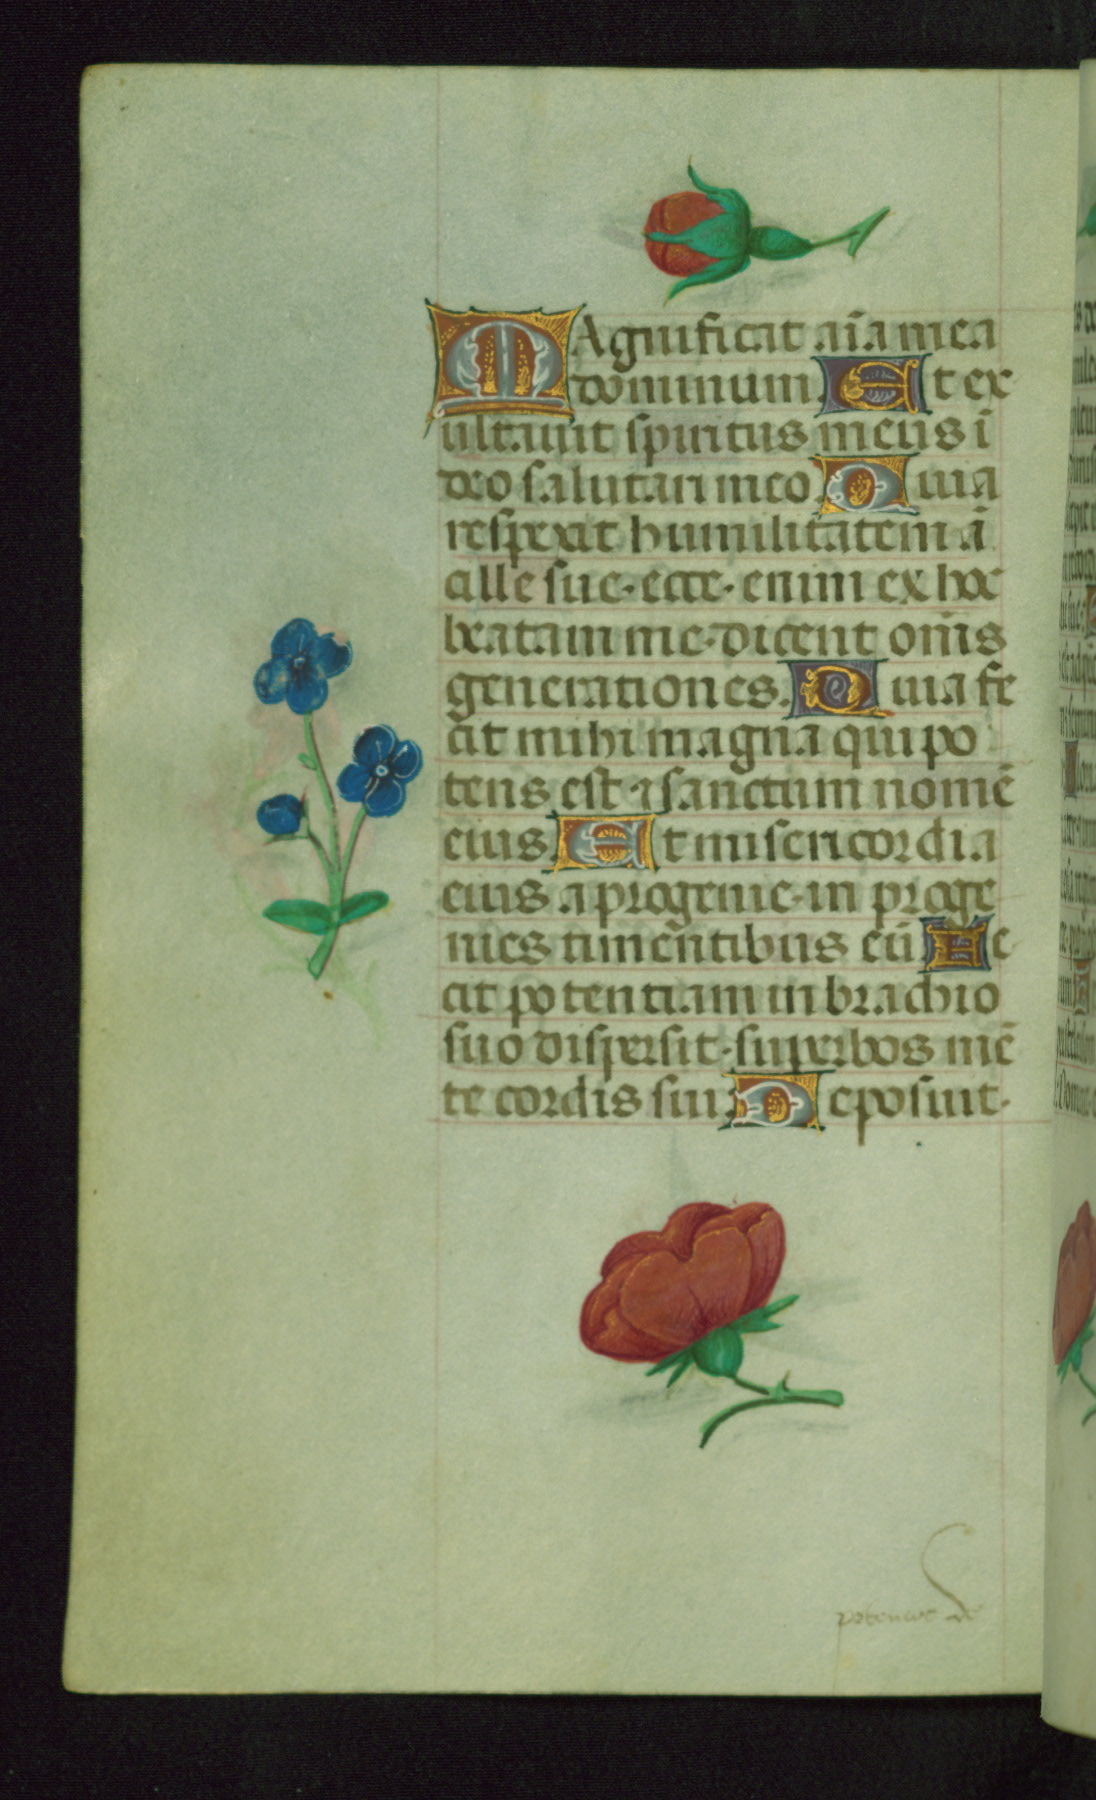 MAgnificat aīa mea
dominum. Et ex
ultauit spiritus meus ī
deo salutari meo. Quia
respexit humilitatem ā
cille sue. ecce. enim ex hoc
beatam me. dicent om̄s
generationes. Quia fe
cit mihi magna qui po
tens est ⁊ sanctum nomē
eius. Et misericordia
eius a progenie. in proge
nies timentibus eū Fe
cit potentiam in brachio
suo dispersit. superbos mē
te cordis sui. Deposuit.
potentes de